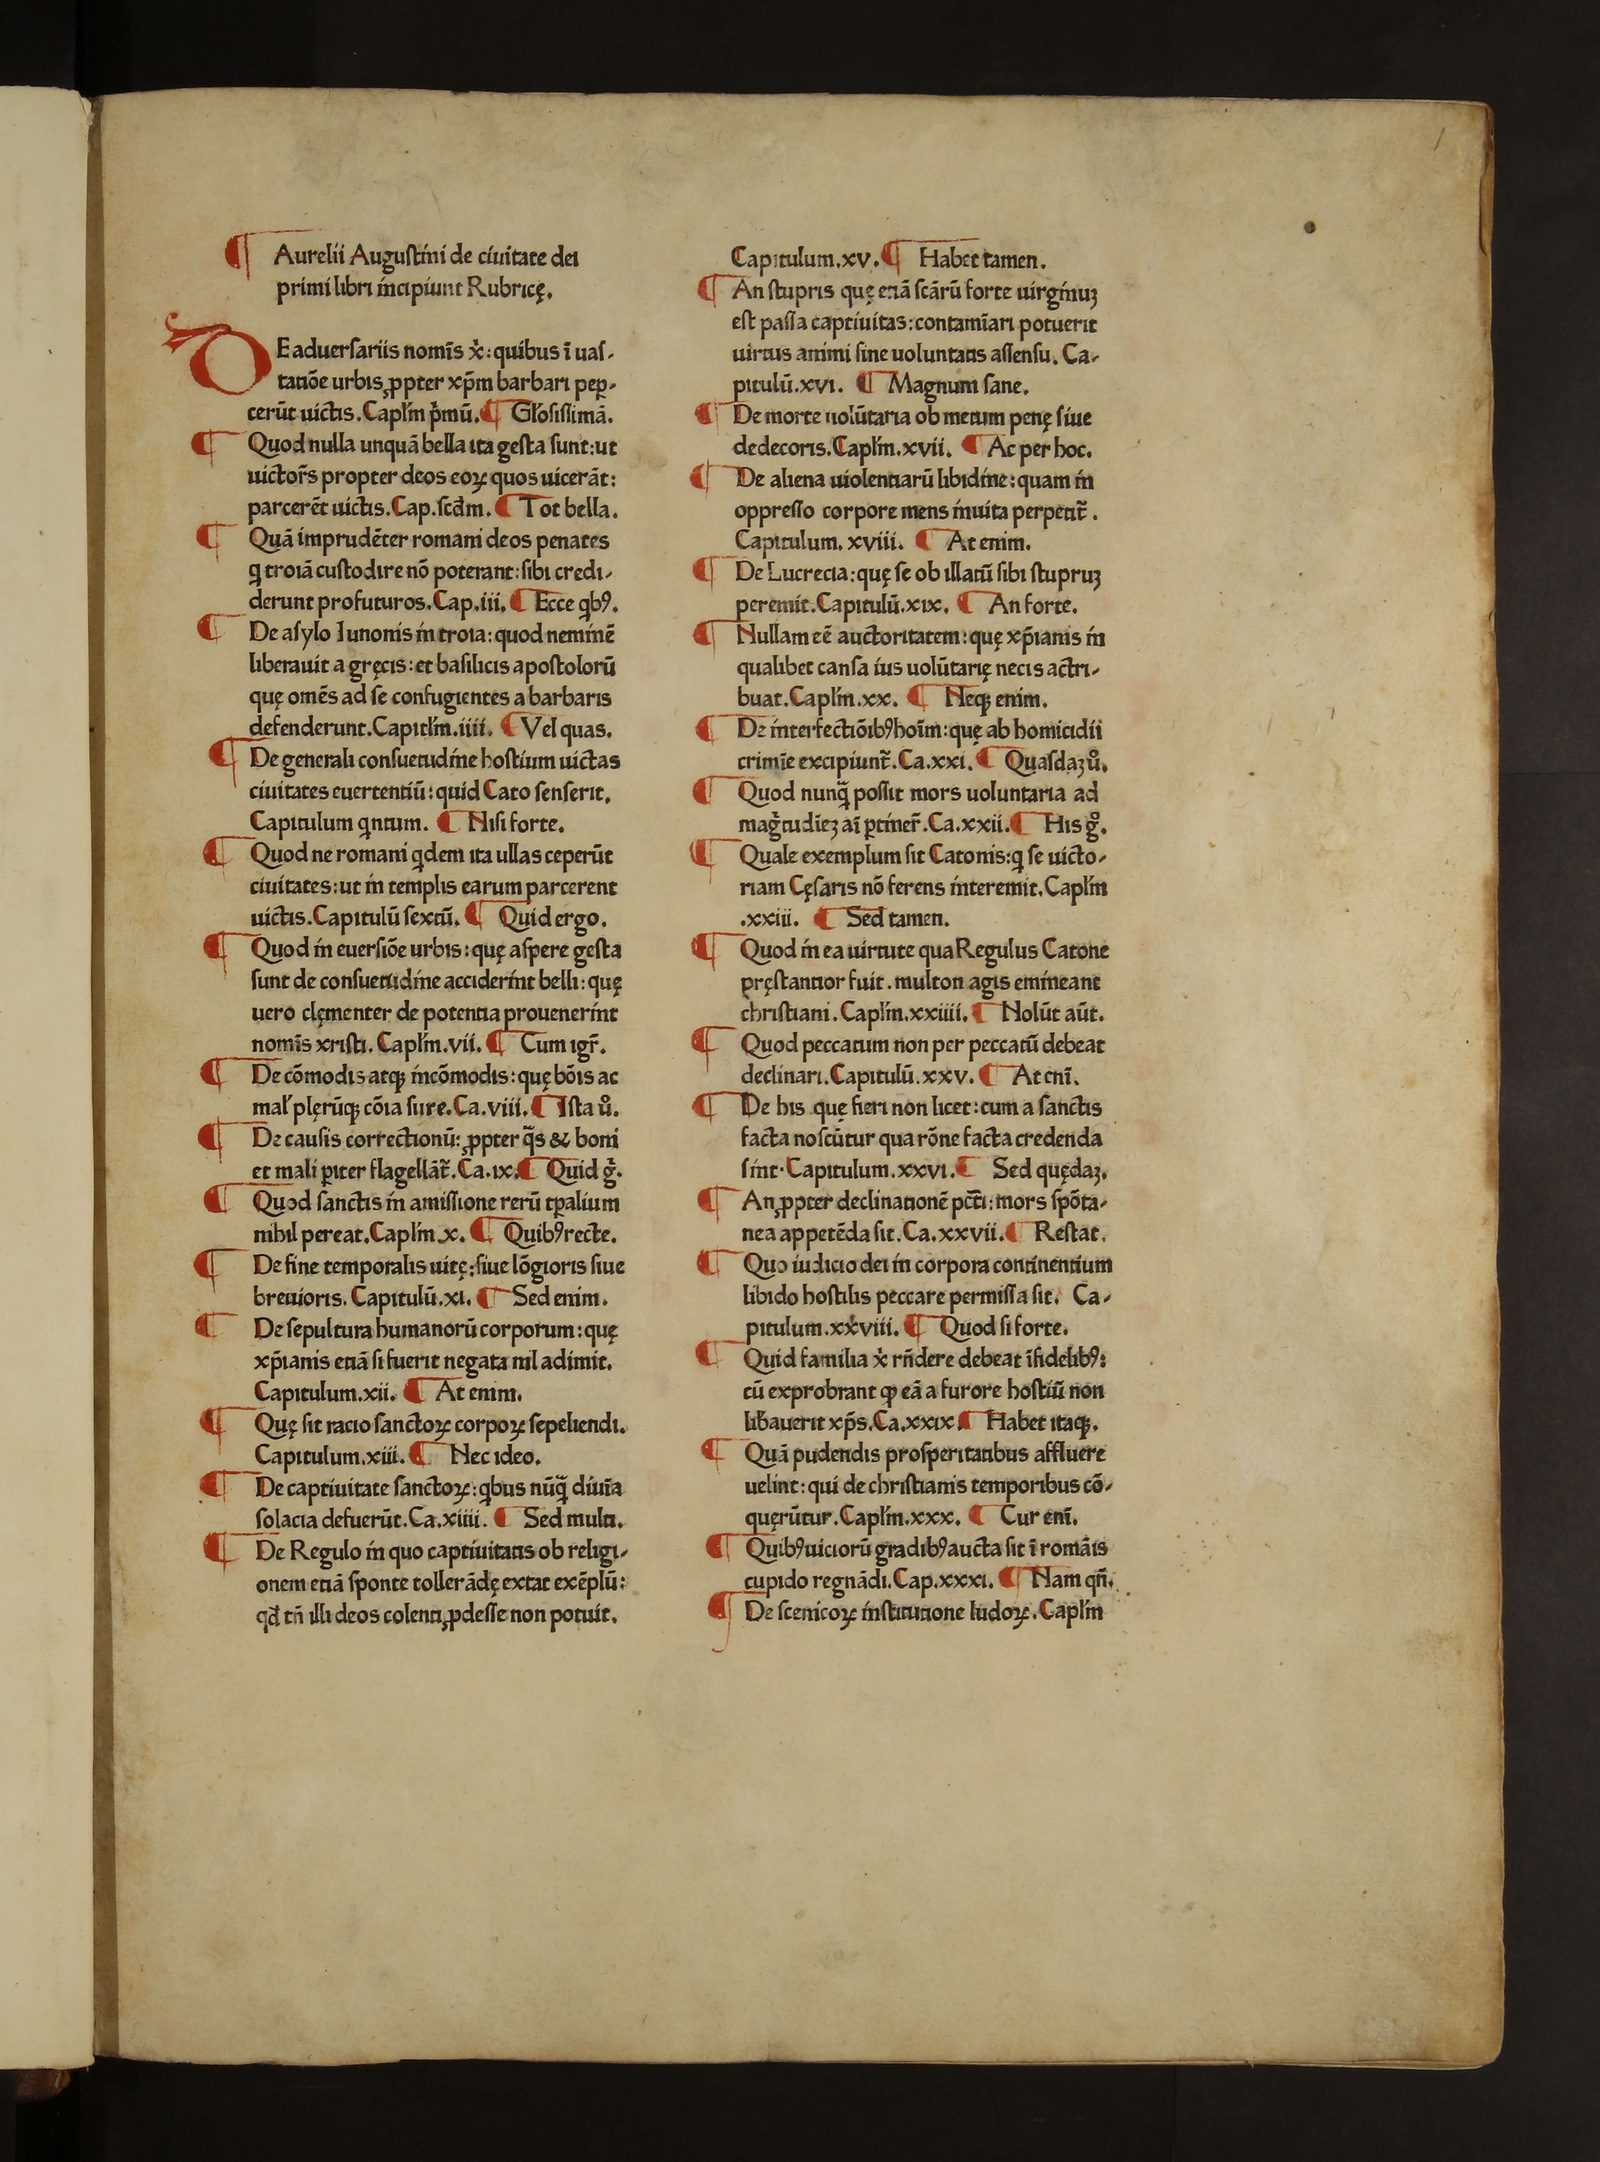 1
¶ Aurelíí Augustíni de ciuitate dei
primi libri íncipiunt Rubricę.
DE aduersariis nomīs xp̄i: quibus ī uas-
tatiōe urbis ꝓpter xp̄m barbari peꝑ-
cerūt uictis. Capl'm p̄mū. ¶ Gl'osissimā.
¶ Quod nulla unquā bella ita gesta sunt: ut
uictor̄s propter deos eoꝝ quos uicerāt:
parcerēt uictis. Cap. scd̄m. ¶ Tot bella.
¶ Quā imprudēter romani deos penates
q̄ troiā custodire nō poterant: sibi credi-
derunt profuturos. Cap. iii. ¶ Ecce qbꝰ.
¶ De asylo Iunonis ín troia: quod neminē
liberauit a gręcis: et basilicis apostolorū
quę omēs ad se confugientes a barbaris
defenderunt. Capitl'm. iiii. ¶ Vel quas.
¶ De generali consuetudíne hostium uictas
ciuitates euertentiū: quid Cato senserit.
Capitulum qntum. ¶ Nisi forte.
¶ Quod ne romani qdem ita ullas ceperūt
ciuitates: ut ín templis earum parcerent
uictis. Capitulū sextū. ¶ Quid ergo.
¶ Quod ín euersiōe urbis: quę aspere gesta
sunt de consuetudíne acciderínt belli: quę
uero clęmenter de potentia prouenerínt
nomīs xristi. Capl'm. vii. ¶ Cum igr̄.
¶ De cōmodis atqꝫ íncōmodis: quę bōis ac
mal' plęrūqꝫ cōia sūre. Ca. viii. ¶ Ista ů.
¶ De causis correctionū: ꝓpter q̄s & boni
et mali ꝑiter flagellāt̄. Ca. ix. ¶ Quid g̊.
¶ Quod sanctis ín amissione rerū tꝑalium
nihil pereat. Capl'm. x. ¶ Quibꝰ recte.
¶ De fine temporalis uitę: siue lōgioris siue
breuioris. Capitulū. xi. ¶ Sed enim.
¶ De sepultura humanorū corporum: quę
xp̄ianis etiā si fuerit negata nil adimit.
Capitulum. xii. ¶ At enim.
¶ Quę sit racio sanctoꝝ corpoꝝ sepeliendi.
Capitulum. xiii. ¶ Nec ideo.
¶ De captiuitate sanctoꝝ: qbus nūq̄ diuīa
solacia defuerūt. Ca. xiiii. ¶ Sed multi.
¶ De Regulo ín quo captiuitatis ob religi-
onem etiā sponte tollerādę extat exēplū:
qđ tn̄ illi deos colenti ꝓdesse non potuit.
Capitulum. xv. ¶ Habet tamen.
¶ An stupris quę etiā scārū forte uirgínuꝫ
est passa captiuitas: contamīari potuerit
uirtus animi sine uoluntatis assensu. Ca-
pitulū. xvi. ¶ Magnum sane.
¶ De morte uolūtaria ob metum penę siue
dedecoris. Capl'm. xvii. ¶ Ac per hoc.
¶ De aliena uiolentiarū libidíne: quam ín
oppresso corpore mens ínuita perpetit̄.
Capitulum. xviii. ¶ At enim.
¶ De Lucrecia: quę se ob illatū sibi stupruꝫ
peremit. Capitulū. xix. ¶ An forte.
¶ Nullam eē auctoritatem: quę xp̄ianis ín
qualibet cansa ius uolūtarię necis actri-
buat. Capl'm. xx. ¶ Neqꝫ enim.
¶ De ínterfectiōibꝰ hoīm: quę ab homicidíi
crimīe excipiunt̄. Ca. xxi. ¶ Quasdaꝫ ů.
¶ Quod nunq̄ possit mors uoluntaria ad
maḡtudīeꝫ aī ꝑtíner̄. Ca. xxii. ¶ His g̊.
¶ Quale exemplum sit Catonis: q se uicto-
riam Cęsaris nō ferens ínteremit. Capl'm
.xxiii. ¶ Sed tamen.
¶ Quod ín ea uirtute qua Regulus Catone
pręstantior fuit. multon agis emíneant
christiani. Capl'm. xxiiii. ¶ Nolūt aūt.
¶ Quod peccatum non per peccatū debeat
declinari. Capitulū. xxv. ¶ At enī.
¶ De his quę fieri non licet: cum a sanctis
facta noscūtur qua rōne facta credenda
sínt. Capitulum. xxvi. ¶ Sed quędaꝫ.
¶ An ꝓpter declinationē pcc̄ti: mors spōta-
nea appetēda sit. Ca. xxvii. ¶ Restat.
¶ Quo iudicio dei ín corpora continentium
libido hostilis peccare permissa sit. Ca-
pitulum. xxviii. ¶ Quod si forte.
¶ Quid familia xp̄i rn̄dere debeat īfidelibꝰ:
cū exprobrant ꝙ eā a furore hostiū non
lib̄auerit xp̄s. Ca. xxix ¶ Habet itaqꝫ.
¶ Quā pudendis prosperitatibus affluere
uelint: qui de christianis temporibus cō-
quęrūtur. Capl'm. xxx. ¶ Cur enī.
¶ Quibꝰ uiciorū gradibꝰ aucta sit ī romāis
cupido regnādi. Cap. xxxi. ¶ Nam qn̄.
¶ De scenicoꝝ ínstitutione ludoꝝ. Capl'm